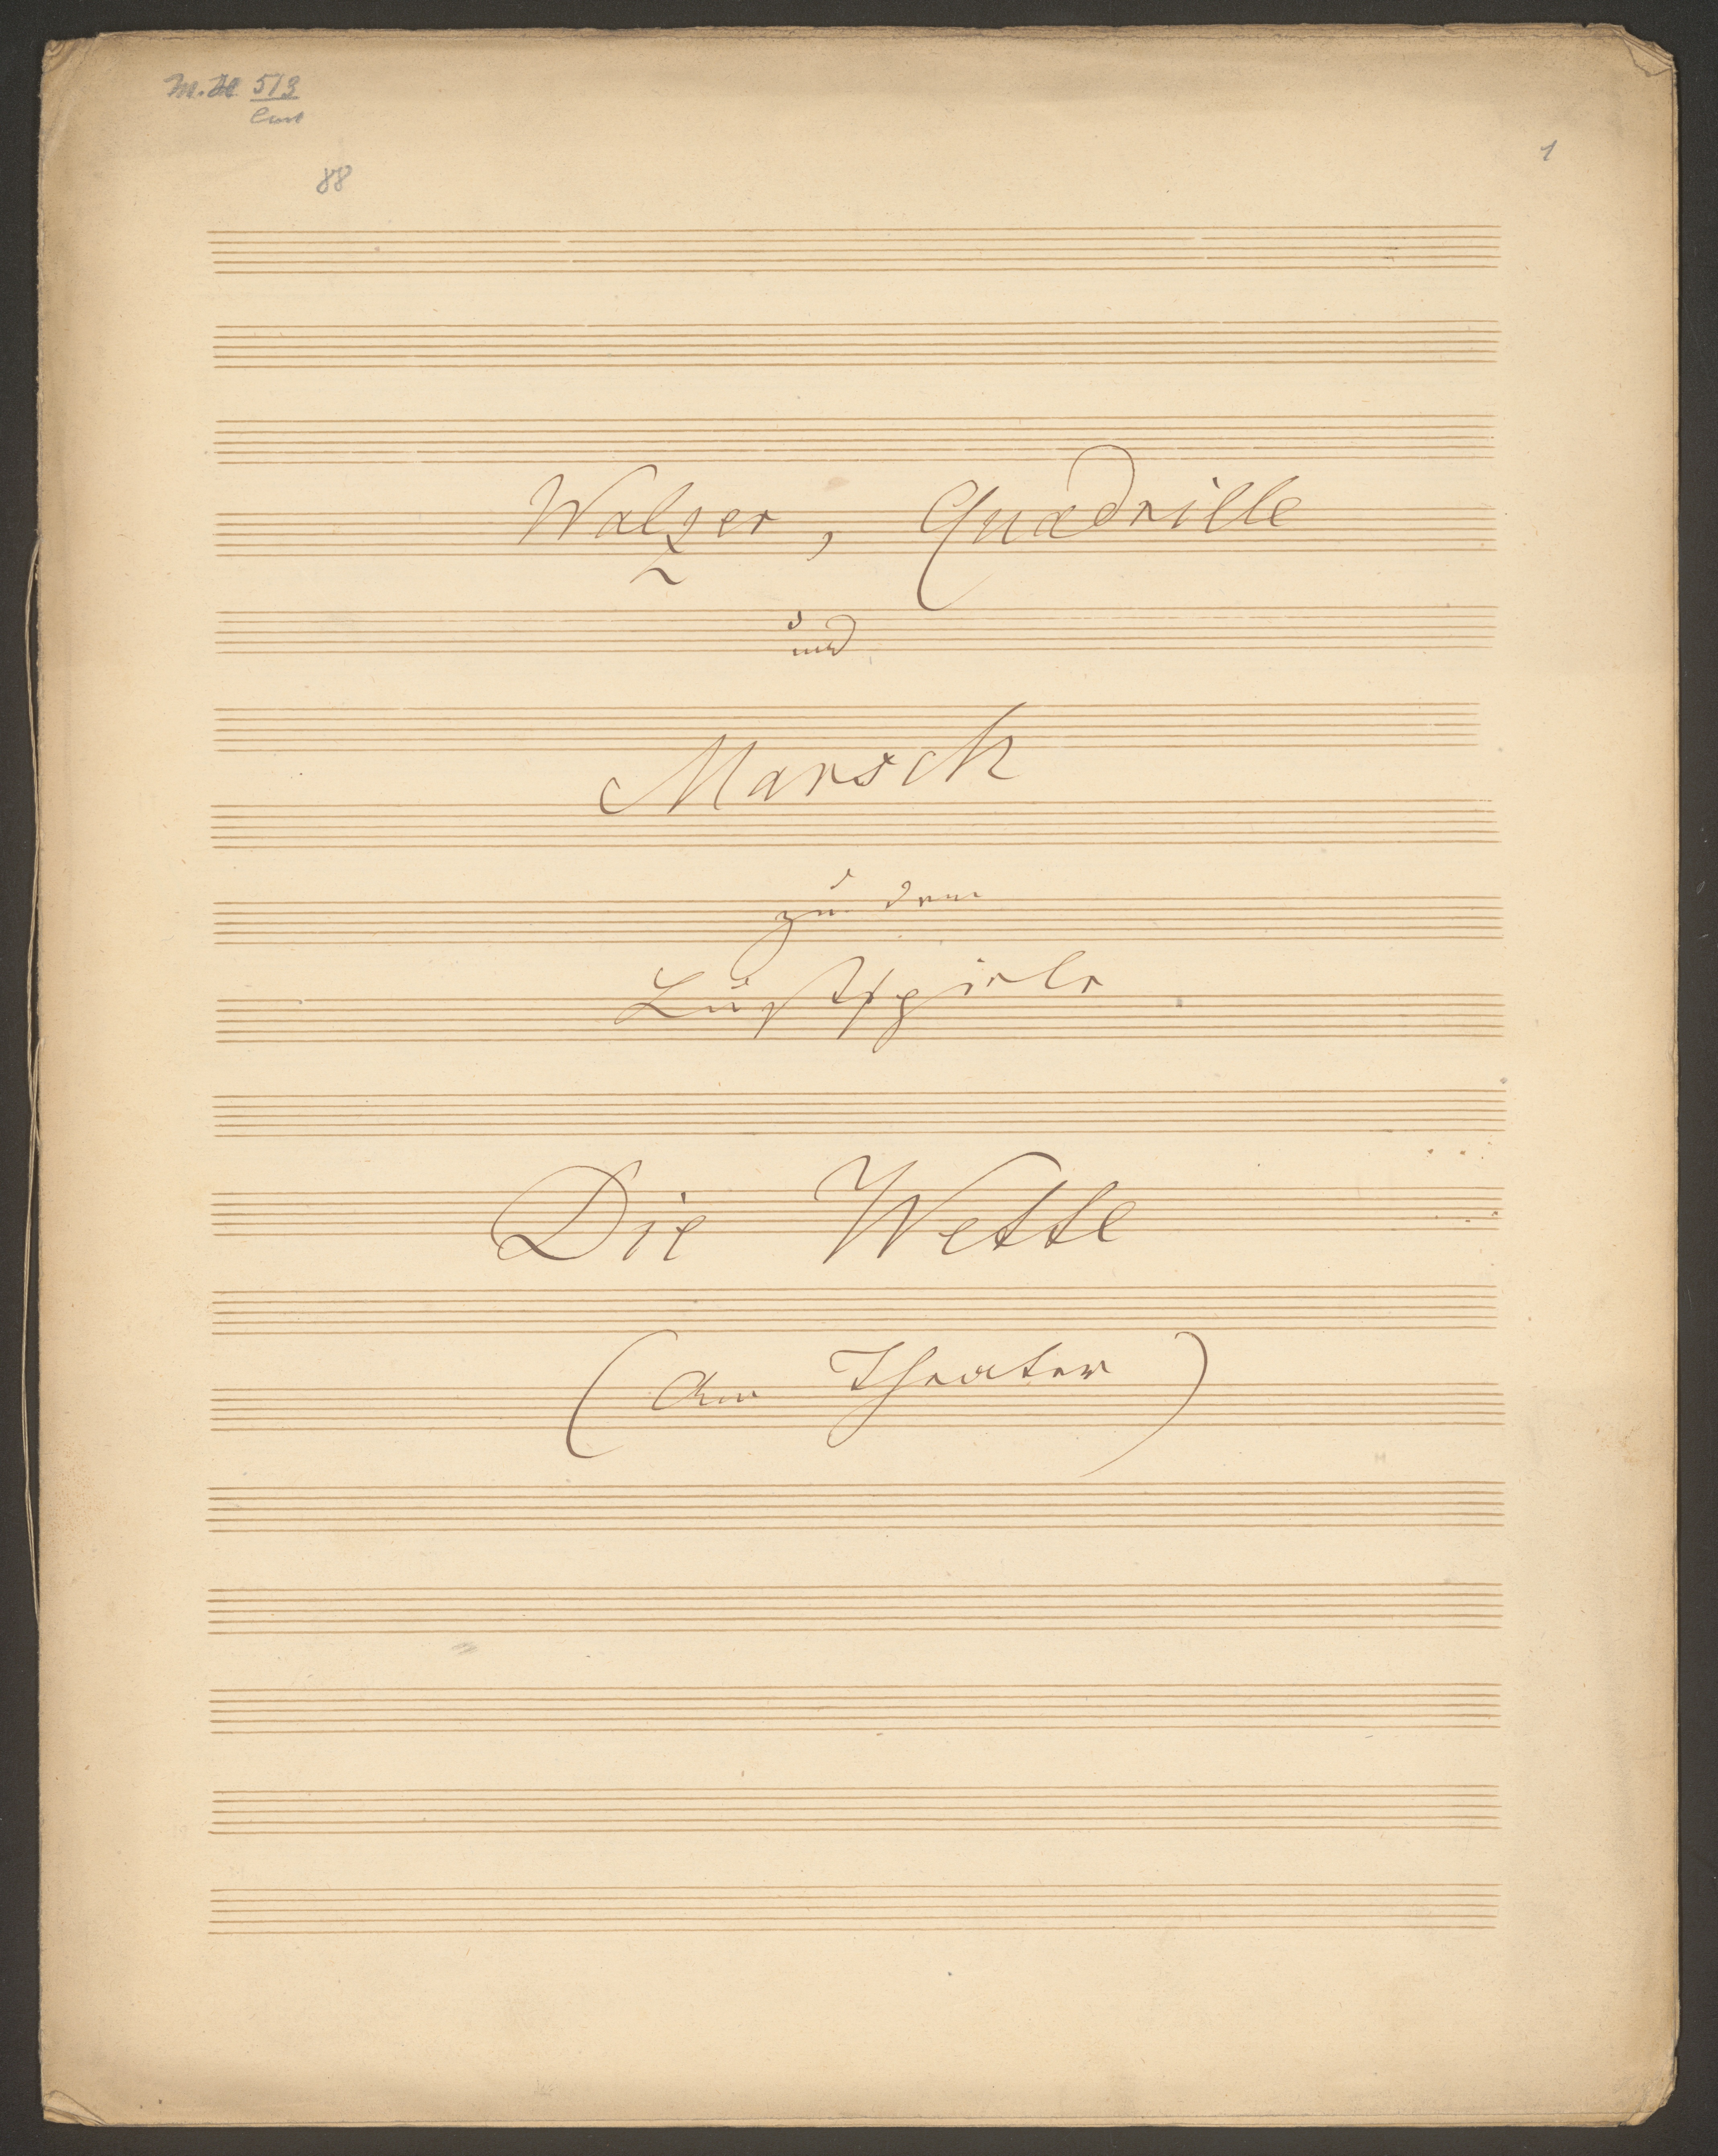 513
88
1
Walzer, Quadrille
und
Marsch
zu dem
Lustspiele
Die Wette
(Am Theater)